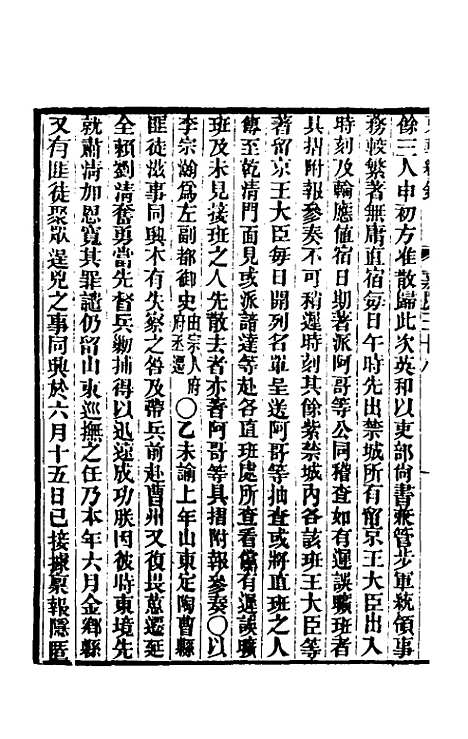 餘三人申初方准散歸此次英和以吏部尙書兼管步軍統領事
務較繁著無庸直宿每日午時先出禁城所有留京王大臣出入
時刻及輪應値宿日期著派阿哥等公同稽查如有遲誤曠班者
具摺附報參奏不可稍遲時刻其餘紫禁城內各該班王大臣等
著留京王大臣每日開列名單呈送阿哥等抽查或將直班之人
傳至乾淸門面見或派諳達等赴各直班處所查看儻有遲誤曠
班及未見接班之人先散去者亦著阿哥等具摺附報參奏〇以
李宗瀚爲左副都御史由宗人府府丞遷〇乙未諭上年山東定陶曹縣
匪徒滋事同興本有失察之咎及帶兵前赴曹州又復畏葸遷延
全賴劉淸奮勇當先督兵勦捕得以迅速成功朕因彼時東境先
就肅淸加恩寬其罪譴仍留山東巡撫之任乃本年六月金鄉縣
又有匪徒聚眾逞兇之事同興於六月十五日已接據稟報隱匿